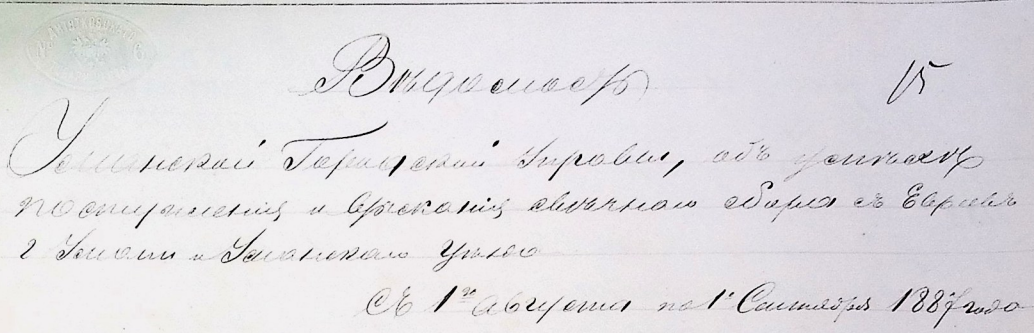 Вѣдомость
15
Уманской Городской Управы, объ успѣхахъ
поступленія и взысканія свѣчнаго сбора съ Евреевъ
г Умани и Уманскаго уѣзда
Съ 1го Августа по 1е Сентября 1887 года